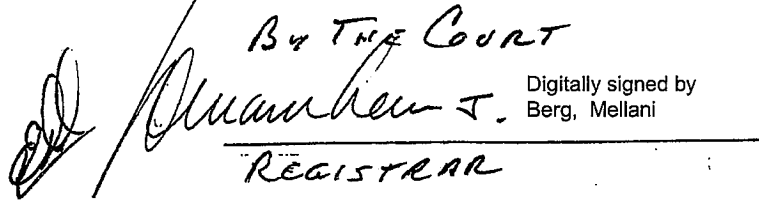 By The Court
J.
Digitally signed by
Berg, Mellani
REGISTRAR